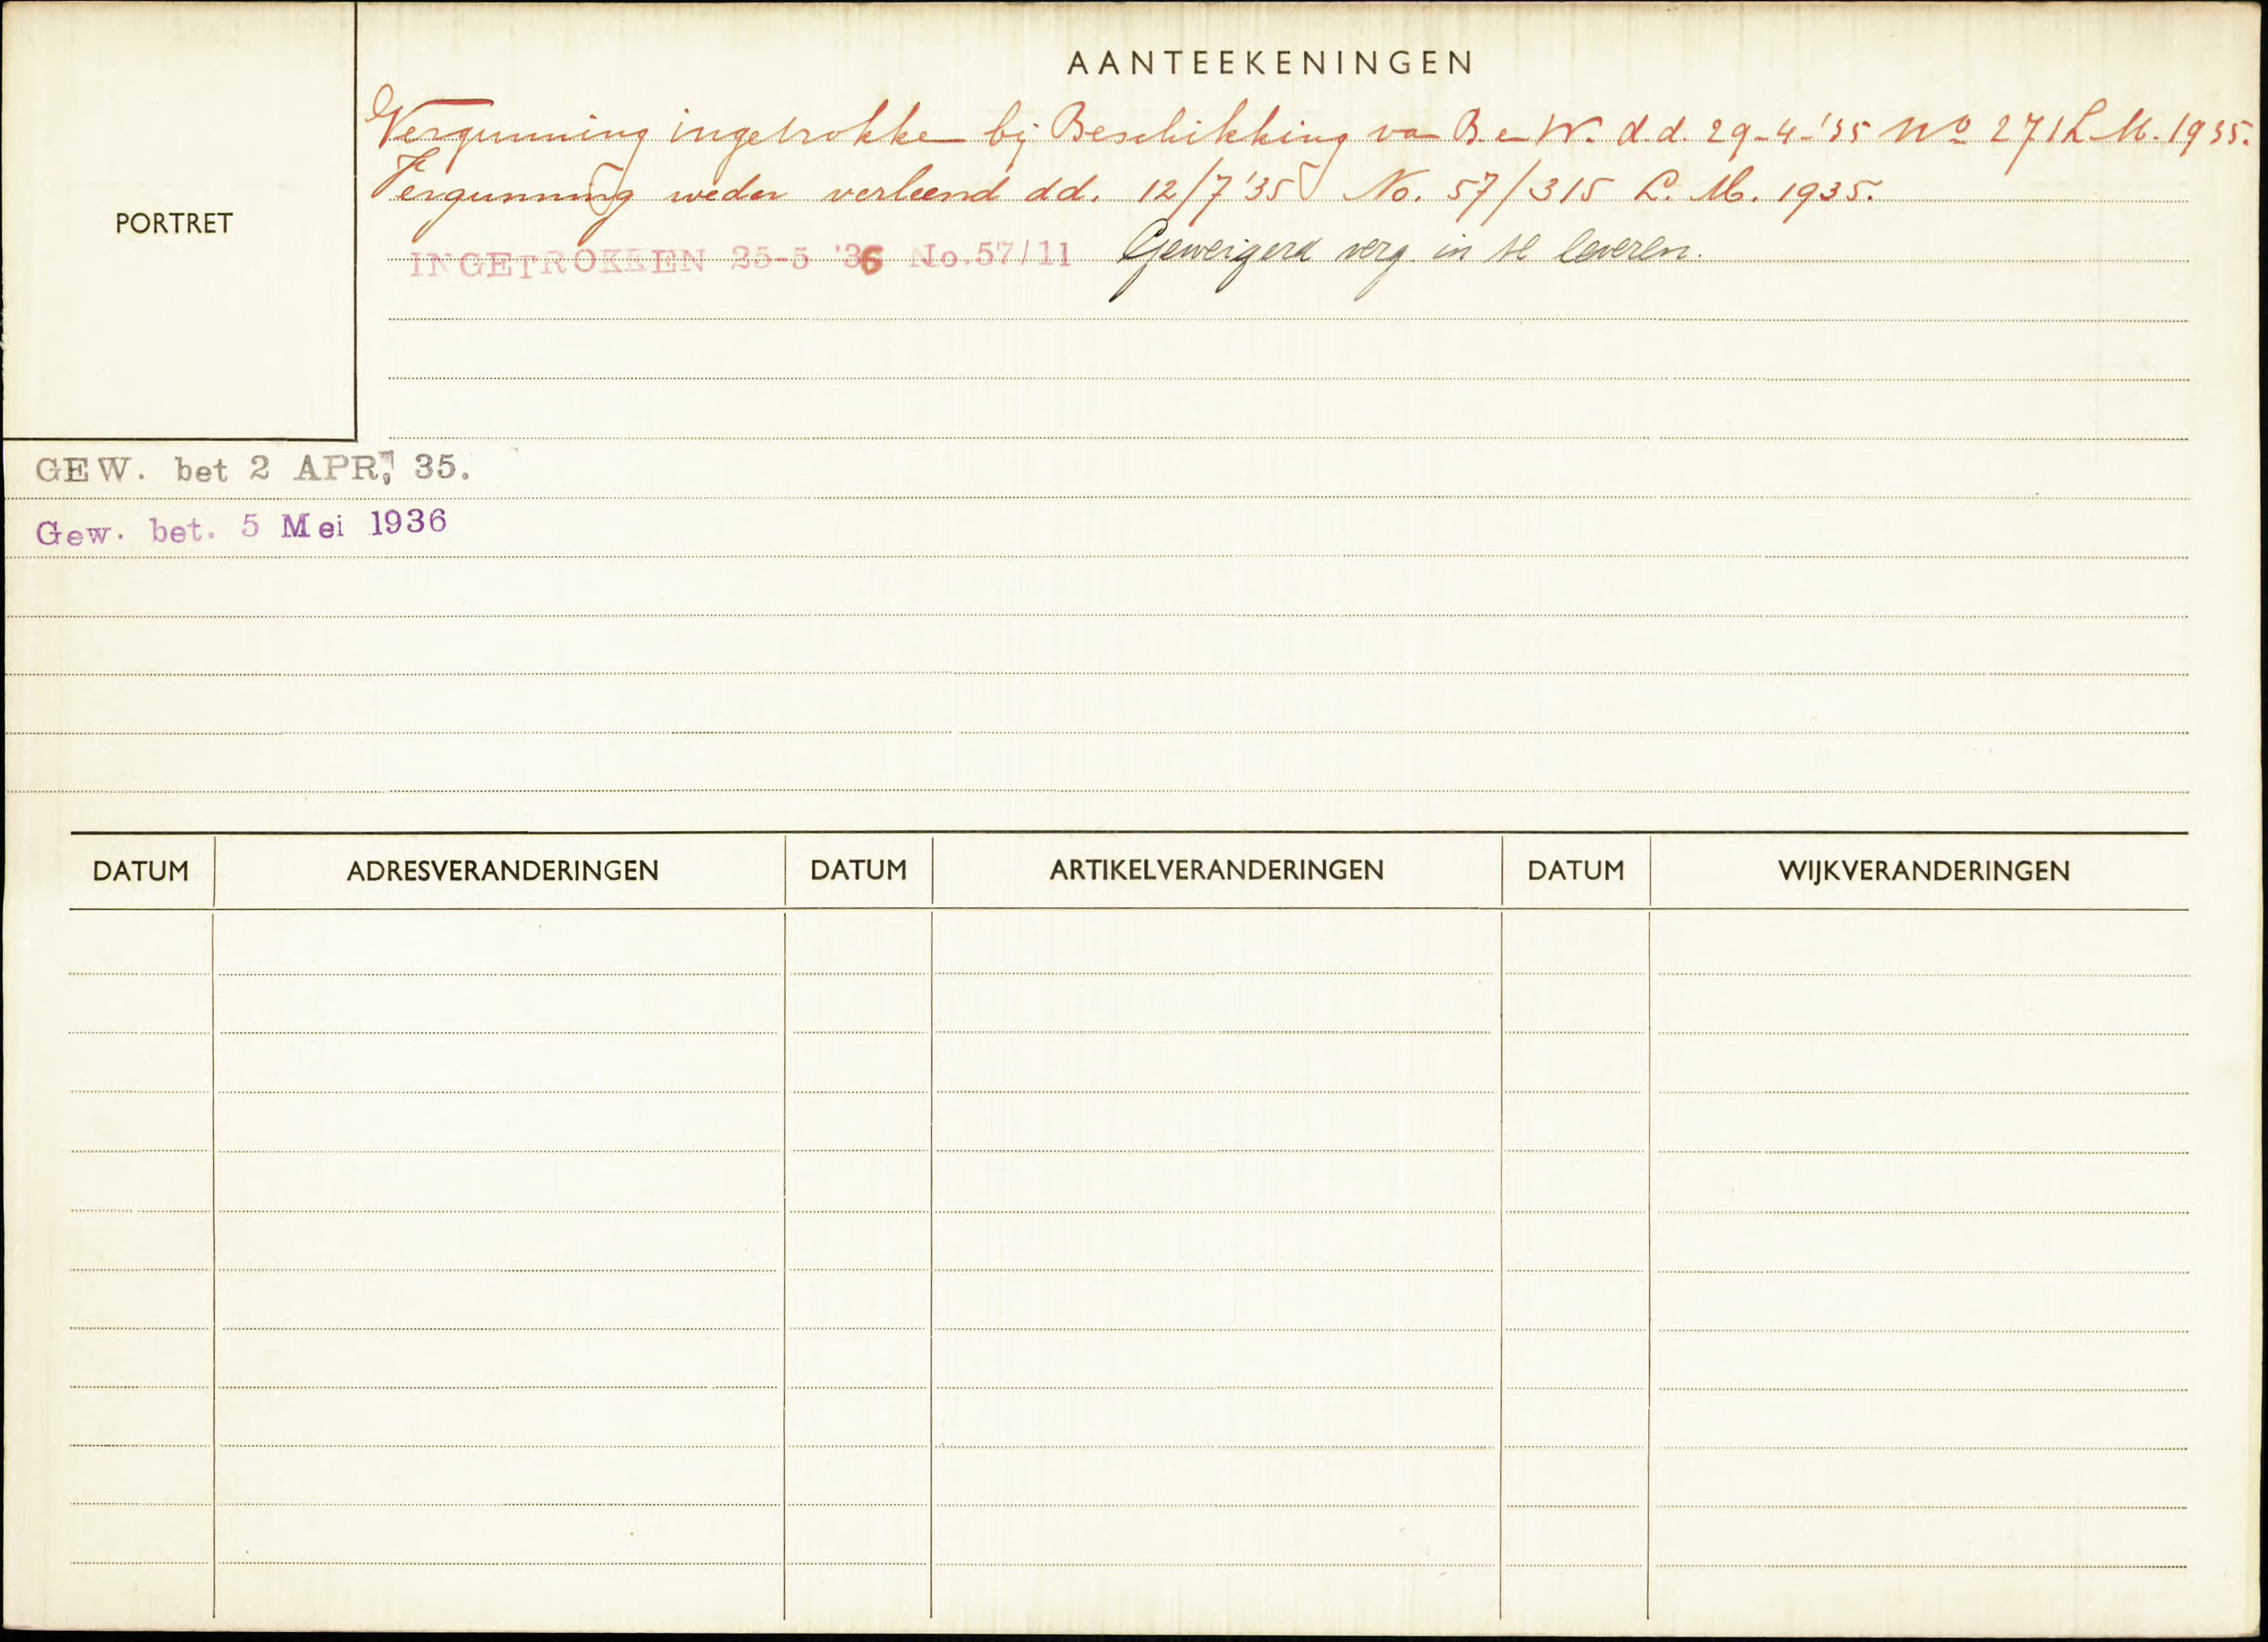 AANTEEKENINGEN
Vergunning ingetrokken bij Beschikking van B. en W. d.d. 29-4-'35 No 271 L.M. 1935.
Vergunning weder verleend dd. 12/7'35 No. 57/315 L. M. 1935.
PORTRET
INGETROKKEN 25-5 '36 No.57/11 Geweigerd verg. in te leveren.
GEW. bet 2 APR, 35.
Gew. bet. 5 Mei 1936
DATUM ADRESVERANDERINGEN DATUM ARTIKELVERANDERINGEN DATUM WIJKVERANDERINGEN